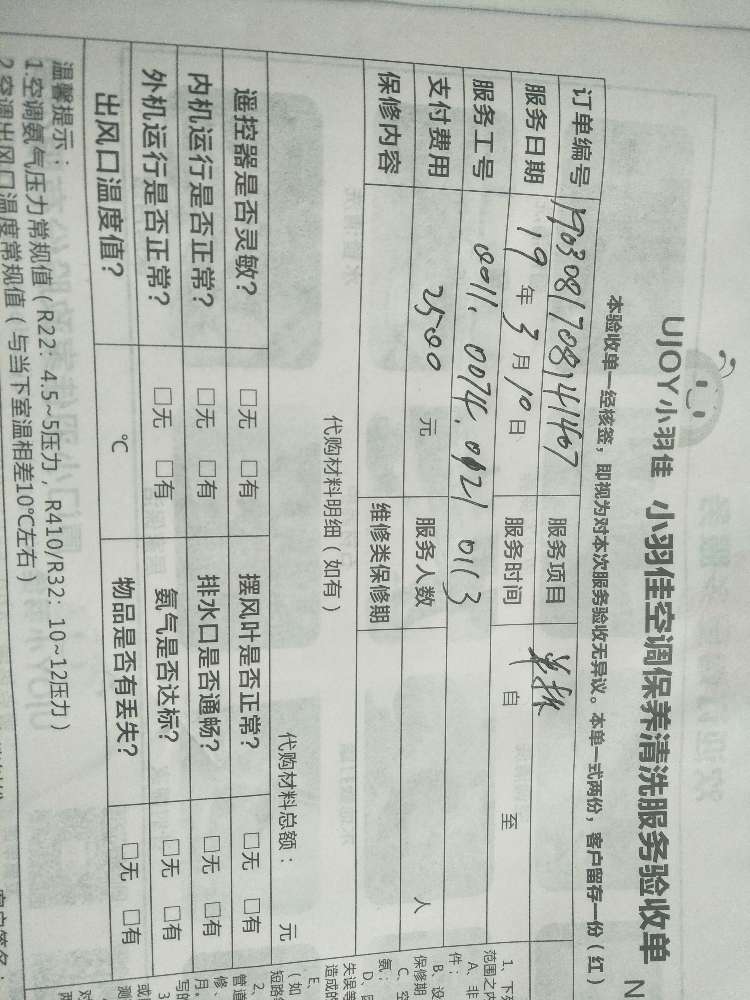 UJOY小羽佳 小羽佳空调保养清洗服务验收单 N
本验收单一经核签，即视为对本次服务验收无异议。本单一式两份，客户留存一份（红）
订单编号 1903081708141407 服务项目
服务日期 19年3月10日 服务时间 自 至
服务工号 0011. 0074. 0021 0113
支付费用 2500 元 服务人数 人
保修内容 维修类保修期
代购材料明细（如有）
代购材料总额： 元
遥控器是否灵敏？ □无 □有 摆风叶是否正常？ □无 □有
内机运行是否正常？ □无 □有 排水口是否通畅？ □无 □有
外机运行是否正常？ □无 □有 氨气是否达标？ □无 □有
出风口温度值？ ℃ 物品是否有丢失？ □无 □有
温馨提示：
1.空调氨气压力常规值（R22：4.5~5压力，R410/R32：10~12压力）
2.空调出风口温度常规值（与当下室温相差10℃左右）
客户签名：
1、下列
范围之内
A、非
件；
B、设
保修期
C、空
氨；
D、因
失误等
造成的
E、
（如
短路
2、
管道
修、
月。
3